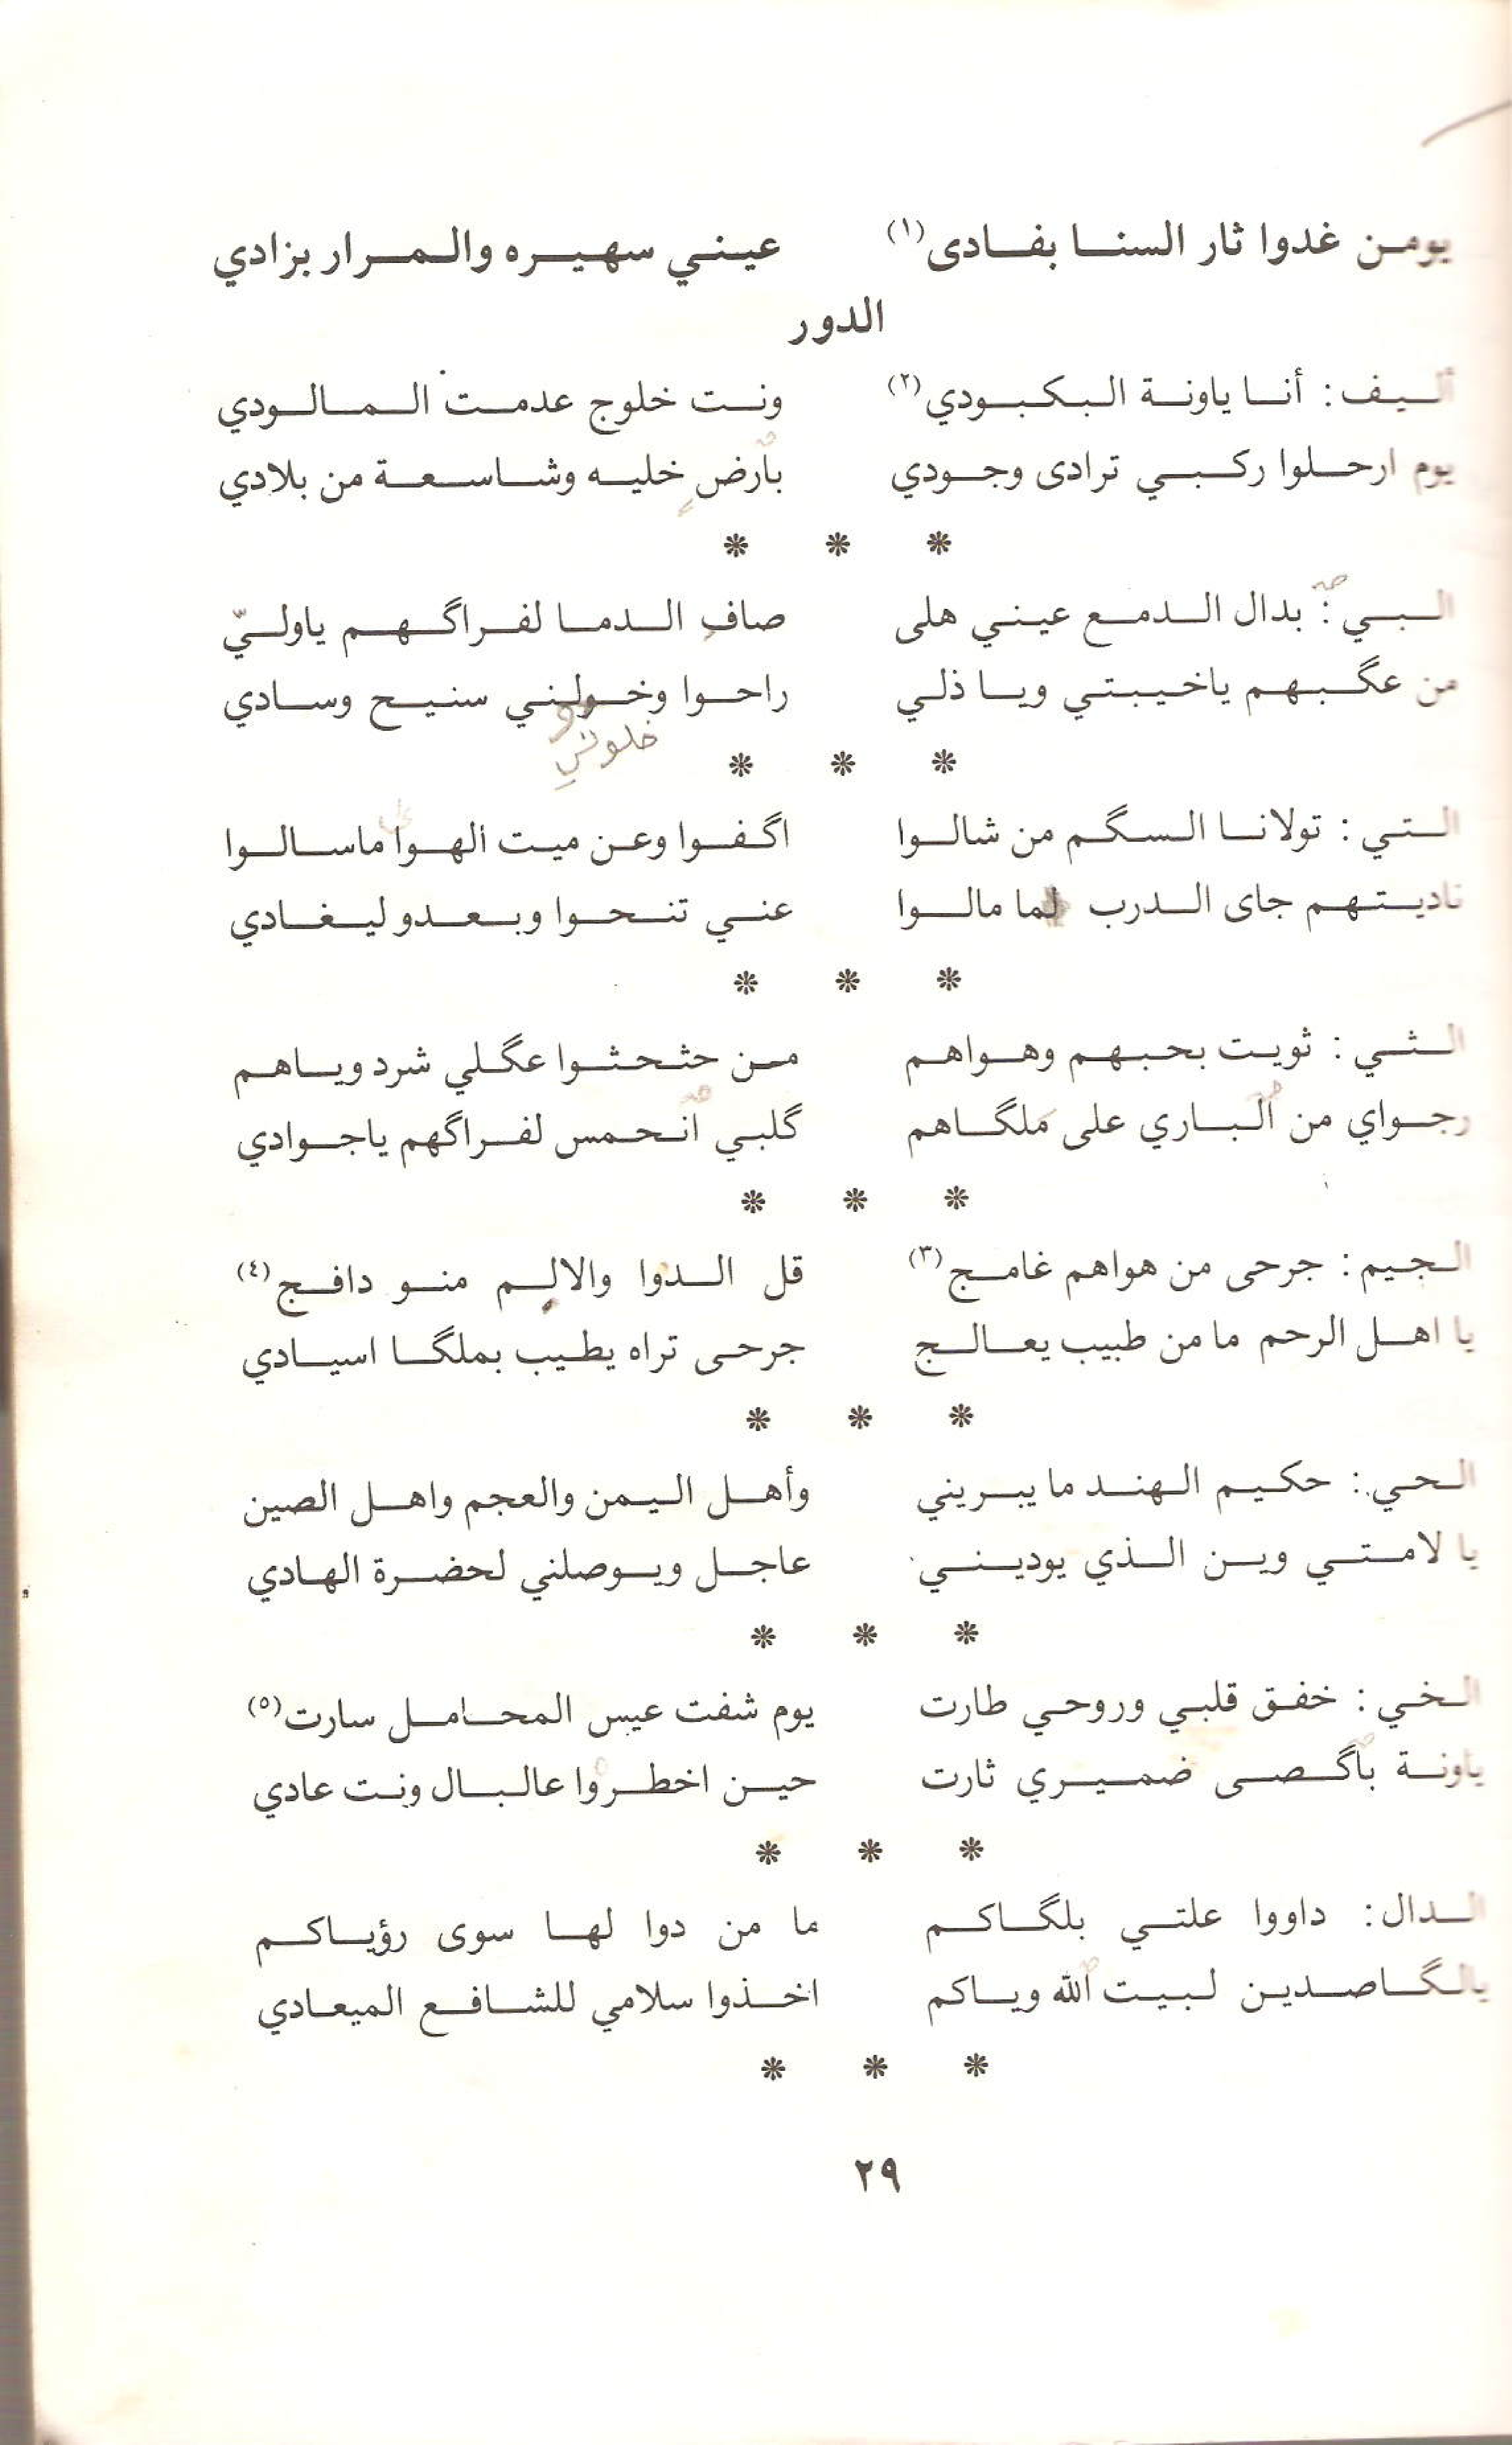 يومن غدوا ثار السنا بفادى(١) عيني سهيره والمرار بزادي
الدور
أليف : أنا ياونة البكبودي(٢) ونت خلوج عدمت المالودي
يوم ارحلوا ركبي ترادى وجودي بأرض خليه وشاسعة من بلادي
* * *
البي : بدال الدمع عيني هلى صاف الدما لفراگهم ياوليّ
من عگبهم ياخيبتي ويا ذلي راحوا وخولني سنيح وسادي
خلوني
* * *
التي : تولانا السگم من شالوا اگفوا وعن ميت الهوا ماسالوا
ناديتهم جاى الدرب لما مالوا عني تنحوا وبعدو ليغادي
* * *
الثي : ثويت بحبهم وهواهم من حثحثوا عگلي شرد وياهم
رجواي من الباري على ملگاهم گلبي انحمس لفراگهم ياجوادي
* * *
الجيم : جرحى من هواهم غامج(٣) قل الدوا والالم منو دافج(٤)
يا اهل الرحم ما من طبيب يعالج جرحى تراه يطيب بملگا اسيادي
* * *
الحي : حكيم الهند ما يبريني وأهل اليمن والعجم واهل الصين
يا لامتي وين الذي يوديني عاجل ويوصلني لحضرة الهادي
* * *
الخي : خفق قلبي وروحي طارت يوم شفت عيس المحامل سارت(٥)
ياونة باگصى ضميري ثارت حين اخطروا عالبال ونت عادي
* * *
الدال : داووا علتي بلگاكم ما من دوا لها سوى رؤياكم
يالگاصدين لبيت الله وياكم اخذوا سلامي للشافع الميعادي
* * *
٢٩